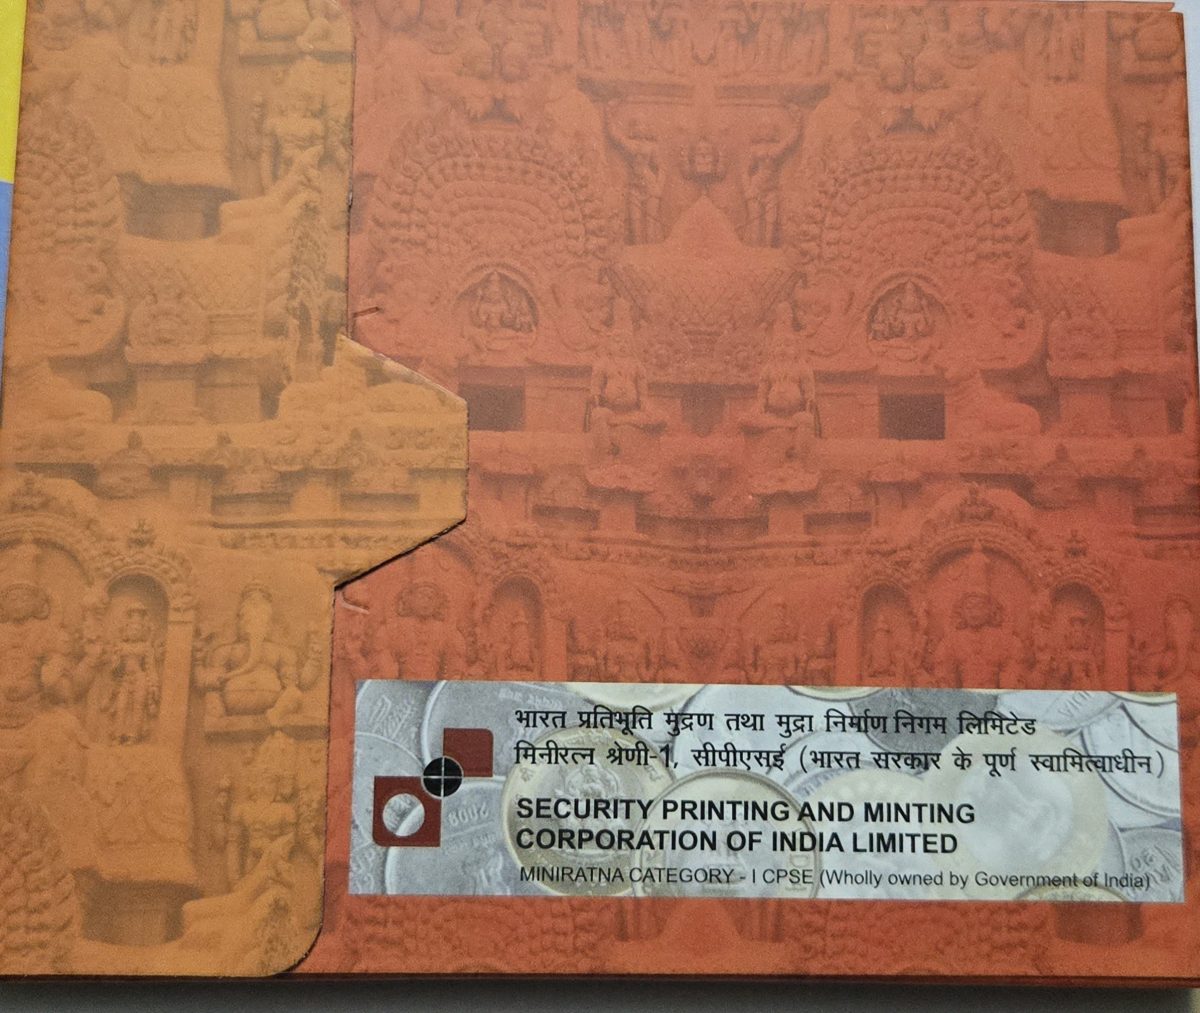 भारत प्रतिभूति मुद्रण तथा मुद्रा निर्माण निगम लिमिटेड
मिनीरत्न श्रेणी-1, सीपीएसई (भारत सरकार के पूर्ण स्वामित्वाधीन)
SECURITY PRINTING AND MINTING
CORPORATION OF INDIA LIMITED
MINIRATNA CATEGORY - I CPSE (Wholly owned by Government of India)